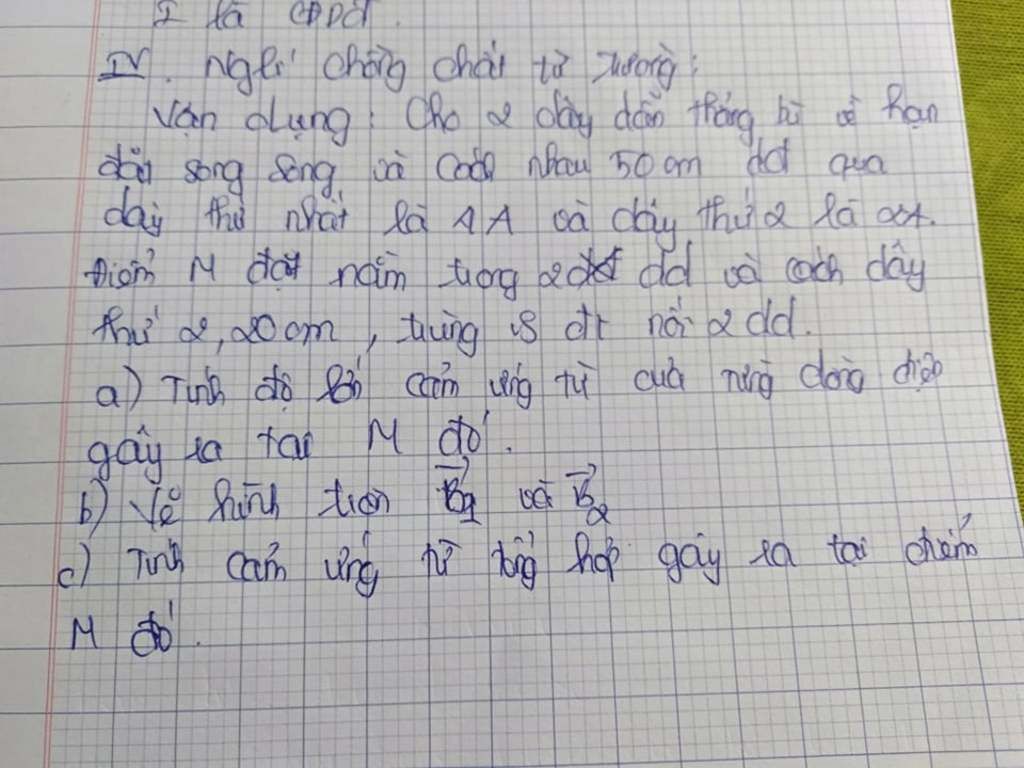 I là CĐDĐ.
IV. Nglí chồng chất từ trường:
Vận dụng: Cho 2 dây dẫn thẳng hì vô hạn
đặt song song và cách nhau 50cm dđ qua
dây thứ nhất là 1A và dây thứ 2 là
Điểm M đặt nằm trong 2 dd và cách dây
thứ 2, 20cm, trùng vs đt nối 2 dd.
a) Tính độ lớn cảm ứng từ của từng dòng điện
gây ra tại M đó.
b) Vẽ hình trên B⃗1 và B⃗2
c) Tính cảm ứng từ tổng hợp gây ra tại điểm
M đó.